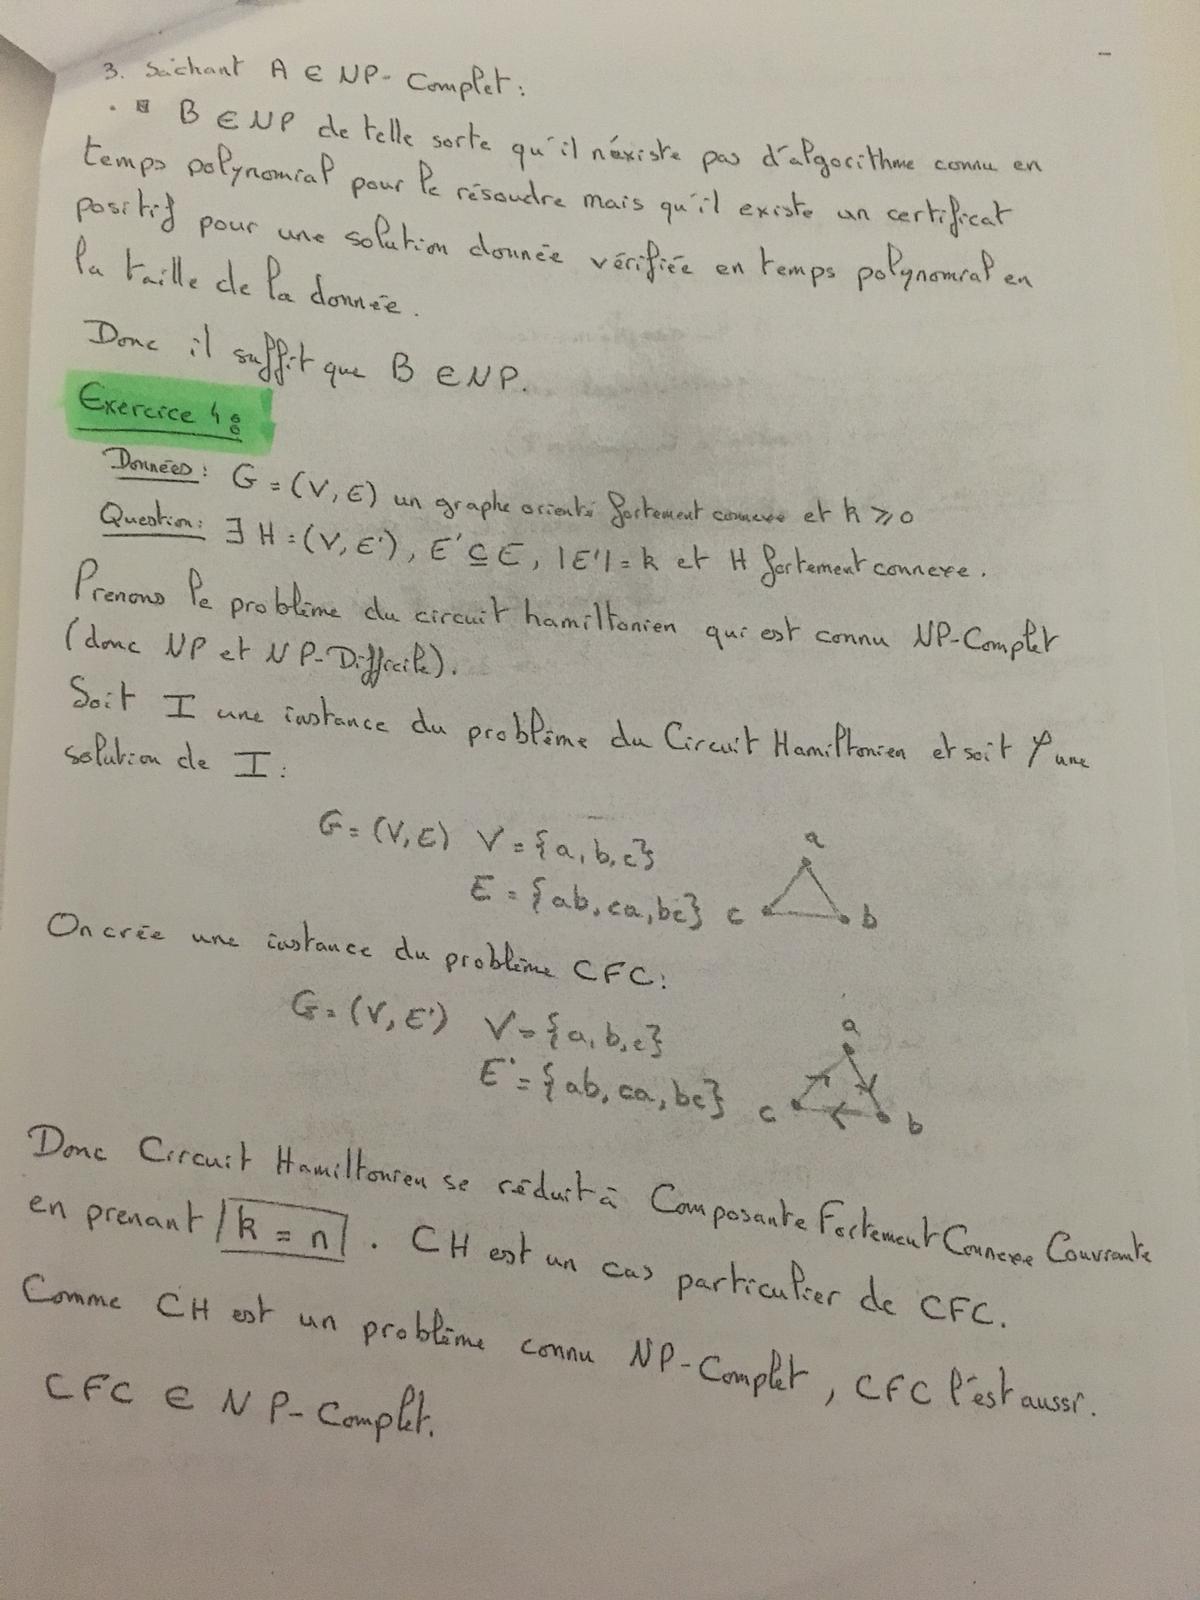 3. Sachant A ∈ NP-Complet :
B ∈ NP de telle sorte qu'il n'existe pas d'algorithme connu en
temps polynomial pour le résoudre mais qu'il existe un certificat
positif pour une solution donnée vérifiée en temps polynomial en
la taille de la donnée.
Donc il suffit que B ∈ NP.
Exercice 4 :
Données : G = (V, E) un graphe orienté fortement connexe et k ⩾ 0
Question : ∃ H = (V, E'), E' ⊆ E, |E'| = k et H fortement connexe.
Prenons le problème du circuit hamiltonien qui est connu NP-Complet
(donc NP et NP-Difficile).
Soit I une instance du problème du Circuit Hamiltonien et soit une
solution de I :
G = (V, E) V = {a, b, c}
a
E = {ab, ca, bc}
c b
On crée une instance du problème CFC :
G = (V, E') V = {a, b, c}
a
E' = {ab, ca, bc}
c b
Donc Circuit Hamiltonien se réduit à Composante Fortement Connexe Couvrante
en prenant k = n . CH est un cas particulier de CFC.
Comme CH est un problème connu NP-Complet, CFC l'est aussi.
CFC ∈ NP-Complet.